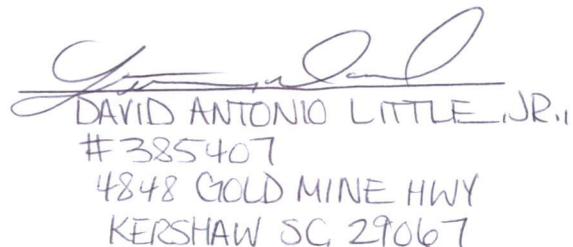 DAVID ANTONIO LITTLE, JR.,
#385407
4848 GOLD MINE HWY
KERSHAW SC, 29067